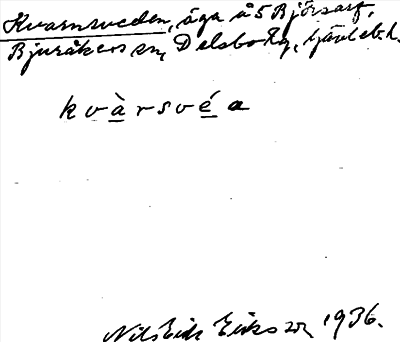 Kvarnsveden, äga å 5 Björsarf,
Bjuråkers sn, Delsbo hg, Gävlebl.
kvàrsvéa
Nils Erik Eriksson 1936.